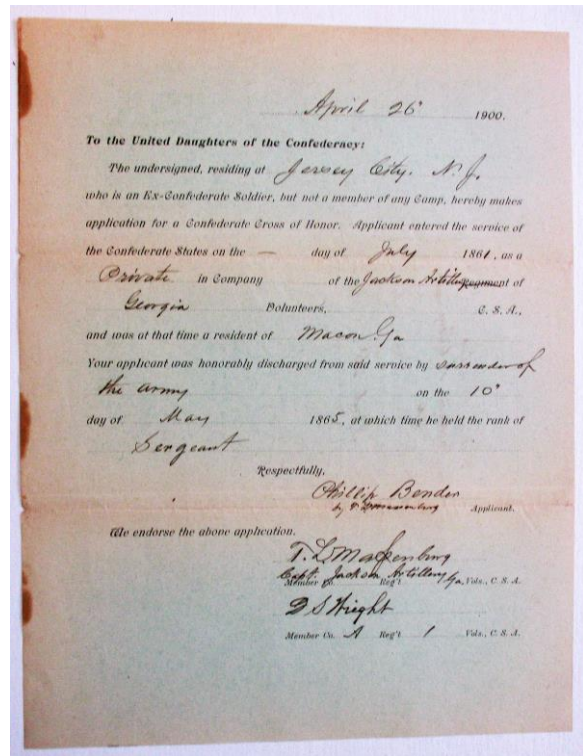 April 26" 1900.
To the United Daughters of the Confederacy:
The undersigned, residing at Jersey City. N. J.
who is an Ex-Confederate Soldier, but not a member of any Camp, hereby makes
application for a Confederate Cross of Honor. Applicant entered the service of
the Confederate States on the — day of July 1861, as a
Private in Company of the Jackson Artillery Regiment of
Georgia Volunteers, C. S. A.,
and was at that time a resident of Macon Ga
Your applicant was honorably discharged from said service by surrender of
the army on the 10"
day of May 1865, at which time he held the rank of
Sergeant
Respectfully,
Phillip Bender
by Applicant.
We endorse the above application.
T. L. Massenburg
Capt. Jackson Artillery
Member Co. Reg't Ga, Vols., C. S. A.
D S Wright
Member Co. A Reg't 1 Vols., C. S. A.